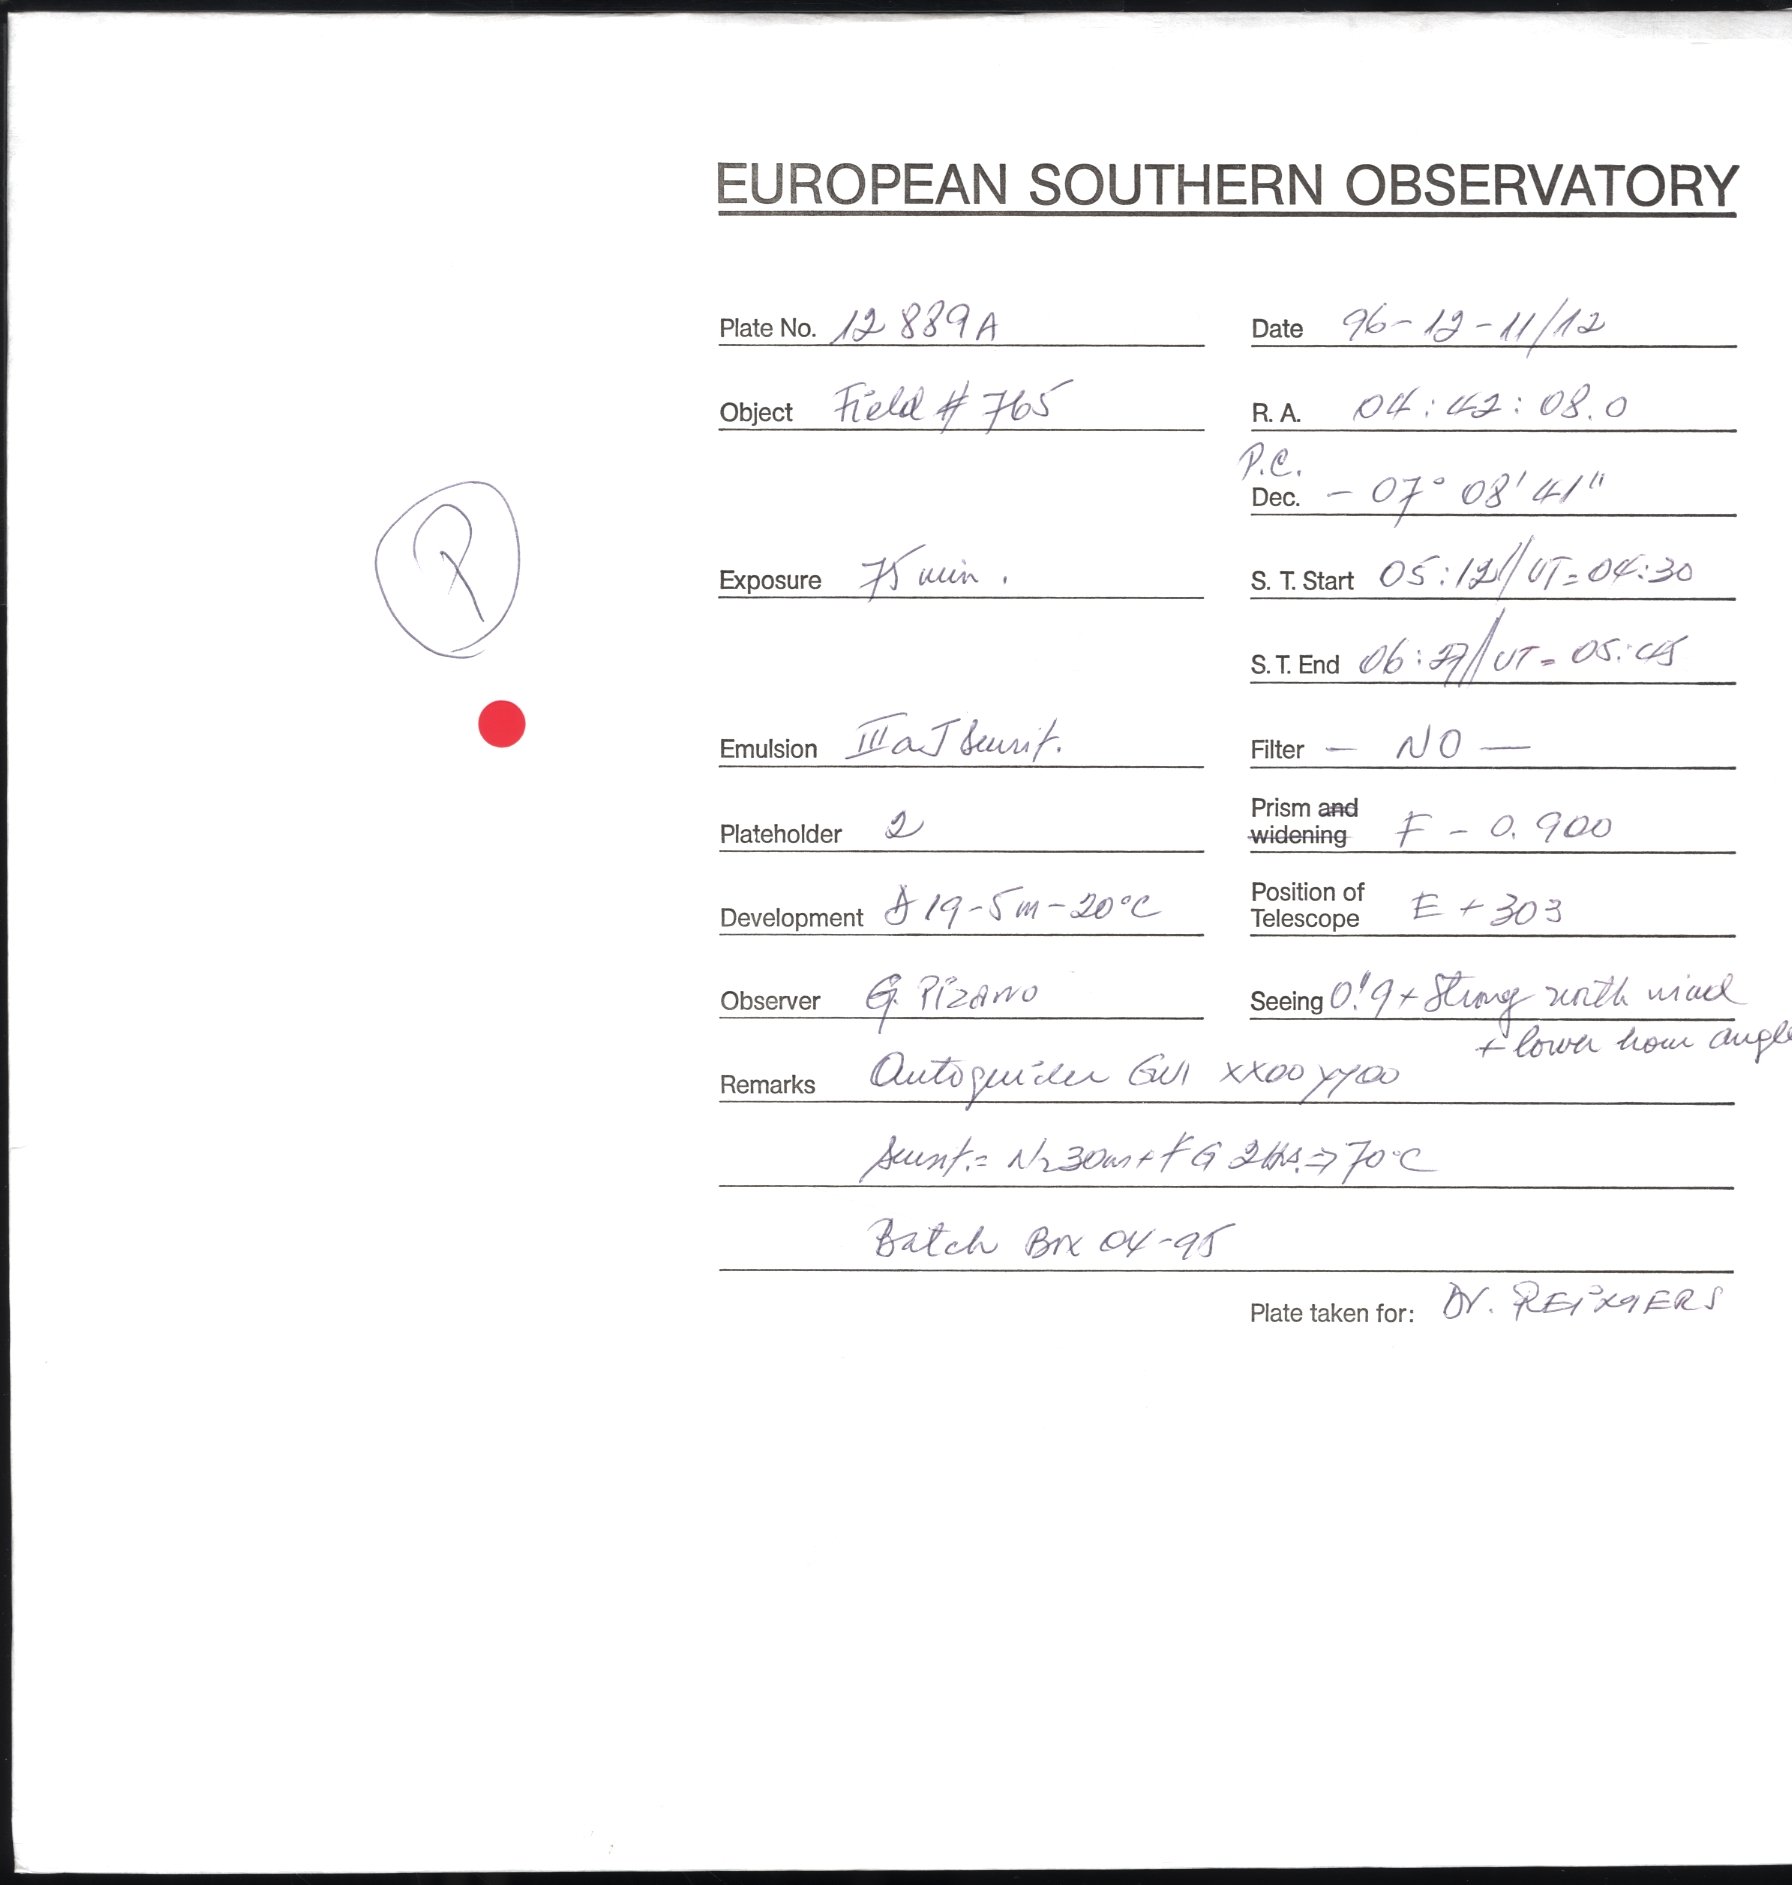 EUROPEAN SOUTHERN OBSERVATORY
Plate No. 12889A
Date 96-12-11/12
Object Field # 765
R. A. 04:42:08.0
P.C.
Dec. - 07° 08' 41"
R
Exposure 75 min.
S. T. Start 05:12//UT=04:30
S. T. End 06:27//UT=05:45
Emulsion IIIaJ Sensit.
Filter — NO —
Plateholder 2
Prism and widening F - 0.900
Development D19-5m-20°C
Position of Telescope E + 303
Observer G. Pizarro
Seeing 0."9 + Strong north wind
+ lower hour angle
Remarks Autoguider XX00 YY00
Sensit.= N2 30m + FG 2Hrs. => 70°C
Batch Box 04-95
Plate taken for: Dr. REIMERS